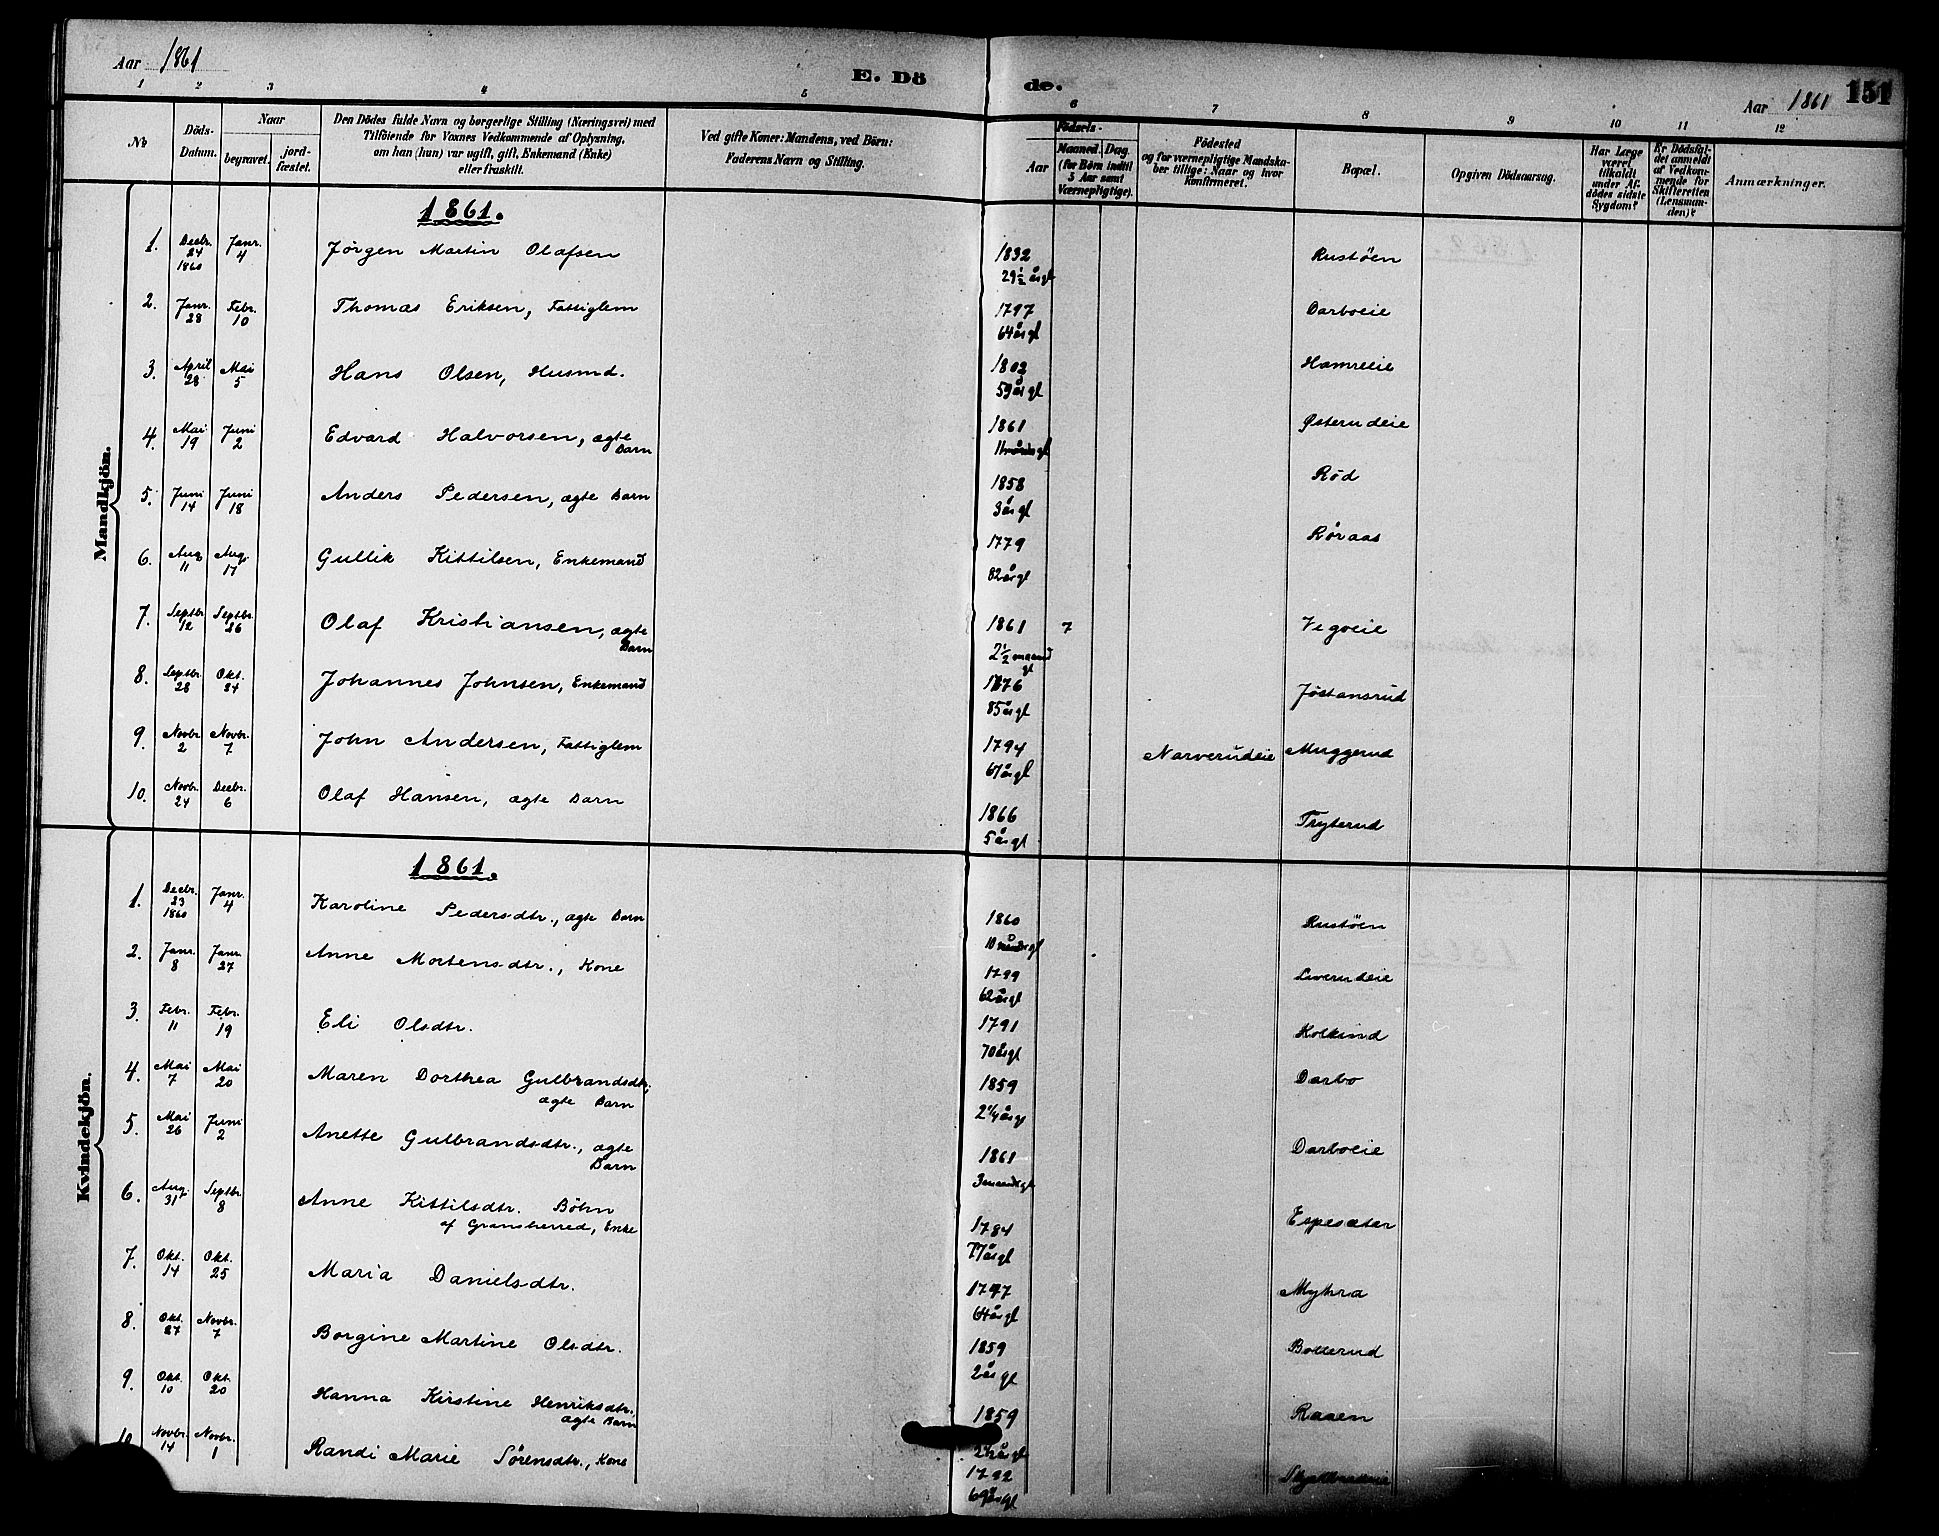 Aar 1861
E. Döde.
Aar 1861
151
1 2 3 4 5 6 7 8 9 10 11 12
No
Döds-Datum.
Naar
begravet. jordfæstet.
Den Dödes fulde Navn og borgerlige Stilling (Næringsvei) med
Tilföiende for Voxnes Vedkommende af Oplysning,
om han (hun) var ugift, gift, Enkemand (Enke)
eller fraskilt.
Ved gifte Koner: Mandens, ved Börn:
Faderens Navn og Stilling.
Födsels-
Aar Maaned. Dag.
(for Börn indtil
5 Aar samt
Værnepligtige).
Födested
og for værnepligtige Mandska-
ber tillige: Naar og hvor
Konfirmeret.
Bopæl.
Opgiven Dödsaarsag.
Har Læge
været
tilkaldt
under Af-
dödes sidste
Sygdom?
Er Dödsfal-
det anmeldt
af Vedkom-
mende for
Skifteretten
(Lensman-
den)?
Anmærkninger.
Mandkjön.
1861.
1. Decbr. 24 1860 Janr. 4 Jørgen Martin Olafsen 1832 29½ årgl Rustøen
2. Janr. 28 Febr. 10 Thomas Eriksen, Fattiglem 1797 64 årgl Darboeie
3. April 28 Mai 5 Hans Olsen, Husmd. 1802 59 årgl Hamreeie
4. Mai 19 Juni 2 Edvard Halvorsen, ægte Barn 1861 Østerudeie
5. Juni 14 Juni 18 Anders Pedersen, ægte Barn 1858 3 årgl Rød
6. Aug. 11 Aug. 17 Gullik Kittilsen, Enkemand 1779 82 årgl Røraas
7. Septbr. 12 Septbr. 26 Olaf Kristiansen, ægte Barn 1861 7 2½ maand gl Vegoeie
8. Septbr. 28 Okt. Johannes Johnsen, Enkemand 85 årgl Jøstansrud
9. Novbr. 2 Novbr. 7 John Andersen, Fattiglem 1794 67 årgl Narverudeie Muggerud
10. Novbr. 24 Decbr. 6 Olaf Hansen, ægte Barn 1866 5 årgl Tryterud
Kvindekjön.
1861.
1. Decbr. 23 1860 Janr. 4 Karoline Pedersdtr., ægte Barn 1860 Rustøen
2. Janr. 8 Janr. 27 Anne Mortensdtr., Kone 1799 62 årgl Liverudeie
3. Febr. 11 Febr. 19 Eli Olsdtr. 1791 70 årgl Kolkind
4. Mai 7 Mai 20 Maren Dorthea Gulbrandsdtr., ægte Barn 1859 2¼ årgl Darbo
5. Mai 26 Juni 2 Anette Gulbrandsdtr., ægte Barn 1861 3 maandsgl Darboeie
6. Aug. 31 Septbr. 8 Anne Kittilsdtr. Bøhn
af Gransherred, Enke 1784 77 årgl Espesæter
7. Okt. 14 Okt. 25 Maria Danielsdtr. 64 årgl Myhra
8. Okt. 27 Novbr. 7 Borgine Martine Olsdtr. 1859 2 årgl Bollerud
9. Okt. 10 Okt. 20 Hanna Kirstine Henriksdtr., ægte Barn 1859 Raaen
10. Novbr. 14 Novbr. 1 Randi Marie Sørensdtr., Kone 1792 69 årgl